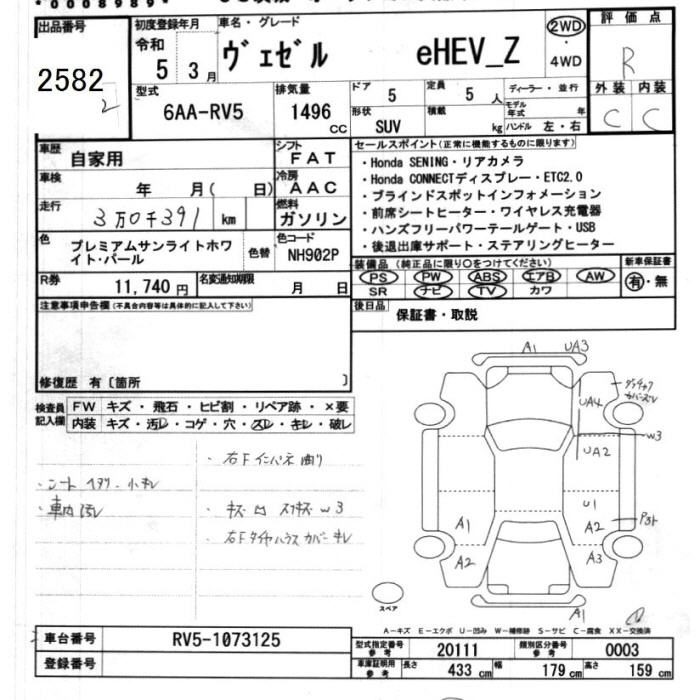 *0008989*
出品番号
2582
2
初度登録年月
令和
5 3月
車名・グレード
ヴェゼル eHEV_Z
2WD
・
4WD
評価点
R
外装 内装
C C
型式
6AA-RV5
排気量
1496 CC
ドア 5
形状 SUV
定員 5 人
積載 kg
ディーラー・並行
モデル年式 年
ハンドル 左・右
車歴 自家用
車検 年 月( 日)
走行 3万0千391 km
色 プレミアムサンライトホワイト・パール
色替
シフト FAT
冷房 AAC
燃料 ガソリン
色コード NH902P
R券 11,740円
名変通知期限 月 日
セールスポイント(正常に機能するものに限ります)
・Honda SENING・リアカメラ
・Honda CONNECTディスプレー・ETC2.0
・ブラインドスポットインフォメーション
・前席シートヒーター・ワイヤレス充電器
・ハンズフリーパワーテールゲート・USB
・後退出庫サポート・ステアリングヒーター
装備品(純正品に限り○をつけてください)
PS PW ABS エアB AW
SR ナビ TV カワ
新車保証書
有・無
後日品 保証書・取説
注意事項申告欄(不具合内容等は具体的に記入して下さい)
修復歴 有〔箇所 〕
検査員記入欄
FW キズ・飛石・ヒビ割・リペア跡・×要
内装 キズ・汚レ・コゲ・穴・スレ・キレ・破レ
・右Fインパネ曲り
・シートヘタリ・小キレ
・車内汚レ
・キズ凹 スリキズ W3
・右Fタイヤハウスカバーキレ
A1 UA3
UA4
W3
UA2
U1
A2
A3
A1
A2
A1
スペア
A-キズ E-エクボ U-凹み W-補修跡 S-サビ C-腐食 XX-交換済
車台番号 RV5-1073125
登録番号
型式指定番号 参考 20111
類別区分番号 参考 0003
車庫証明用 参考 長さ 433 cm 幅 179 cm 高さ 159 cm